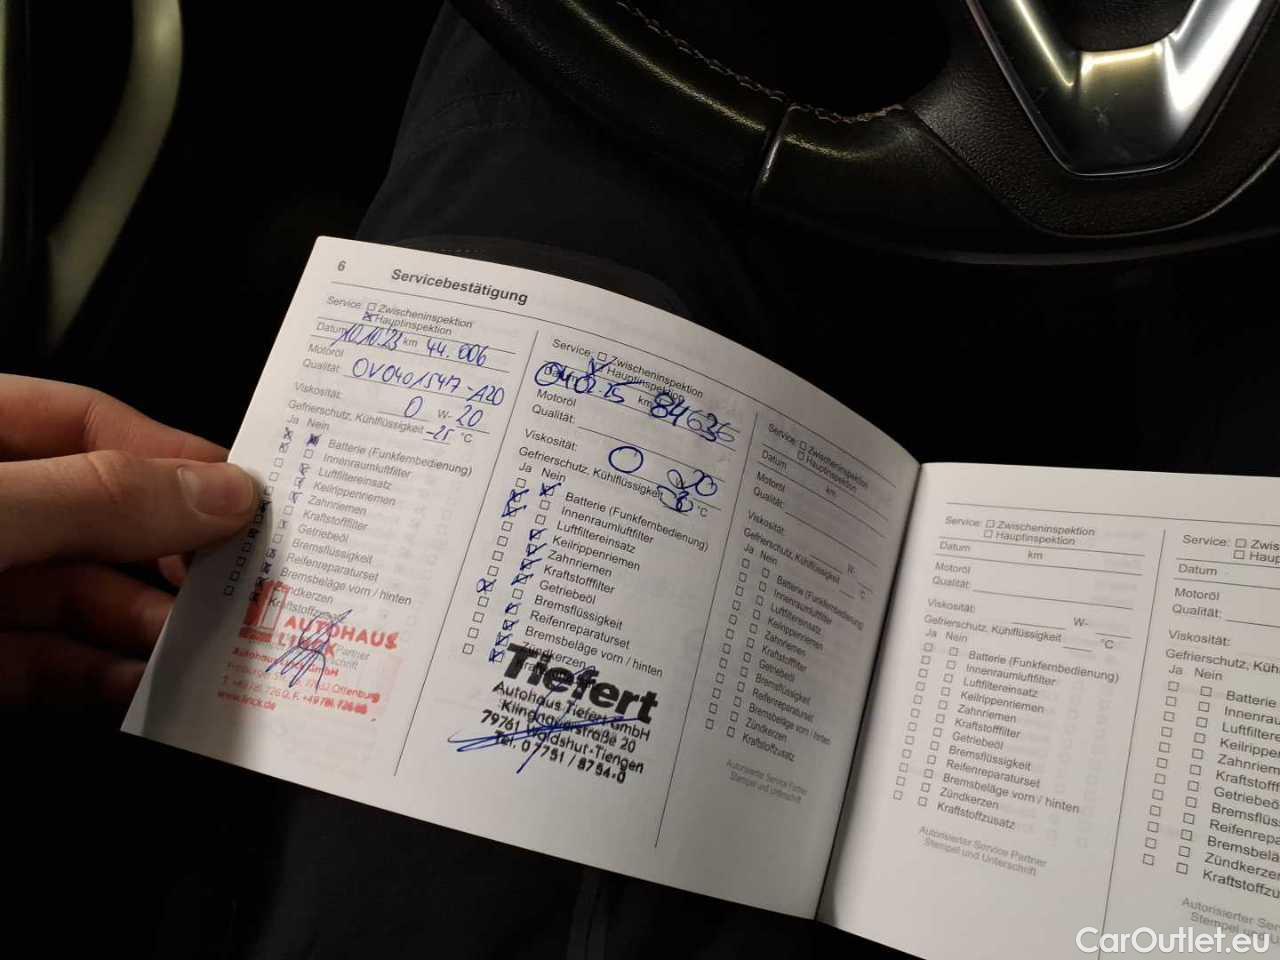 6 Servicebestätigung
Service: Zwischeninspektion
Hauptinspektion
Datum 10.10.23 km 44.006
Motoröl
Qualität: OV0401547-A20
Viskosität: 0 W- 20
Gefrierschutz, Kühlflüssigkeit -25 °C
Ja Nein
Batterie (Funkfernbedienung)
Innenraumluftfilter
Luftfiltereinsatz
Keilrippenriemen
Zahnriemen
Kraftstofffilter
Getriebeöl
Bremsflüssigkeit
Reifenreparaturset
Bremsbeläge vorn / hinten
Zündkerzen
AUTOHAUS
www.linck.de
Service: Zwischeninspektion
Hauptinspektion
04.02.25 km 84636
Motoröl
Qualität:
Viskosität: 0 W 20
Gefrierschutz, Kühlflüssigkeit °C
Ja Nein
Batterie (Funkfernbedienung)
Innenraumluftfilter
Luftfiltereinsatz
Keilrippenriemen
Zahnriemen
Kraftstofffilter
Getriebeöl
Bremsflüssigkeit
Reifenreparaturset
Bremsbeläge vorn / hinten
Zündkerzen
Tiefert
Autohaus Tiefert GmbH
Klingnauerstraße 20
79761 Waldshut-Tiengen
Tel. 07751 / 8754-0
Service: Zwischeninspektion
Hauptinspektion
Datum km
Motoröl
Qualität:
Viskosität: W-
Gefrierschutz, Kühlflüssigkeit °C
Ja Nein
Batterie (Funkfernbedienung)
Innenraumluftfilter
Luftfiltereinsatz
Keilrippenriemen
Zahnriemen
Kraftstofffilter
Getriebeöl
Bremsflüssigkeit
Reifenreparaturset
Bremsbeläge vorn / hinten
Zündkerzen
Kraftstoffzusatz
Autorisierter Service Partner
Stempel und Unterschrift
Service: Zwischeninspektion
Hauptinspektion
Datum km
Motoröl
Qualität:
Viskosität: W-
Gefrierschutz, Kühlflüssigkeit °C
Ja Nein
Batterie (Funkfernbedienung)
Innenraumluftfilter
Luftfiltereinsatz
Keilrippenriemen
Zahnriemen
Kraftstofffilter
Getriebeöl
Bremsflüssigkeit
Reifenreparaturset
Bremsbeläge vorn / hinten
Zündkerzen
Kraftstoffzusatz
Autorisierter Service Partner
Stempel und Unterschrift
Service: Zwis
Haup
Datum
Motoröl
Qualität:
Viskosität:
Gefrierschutz, Küh
Ja Nein
Batterie
Innenrau
Luftfilte
Keilripp
Zahnrie
Kraftst
Getriebeö
Bremsflüs
Reifenrepa
Bremsbelä
Zündkerzen
Kraftstoffzu
Autorisierter Ser
Stempel und U
CarOutlet.eu